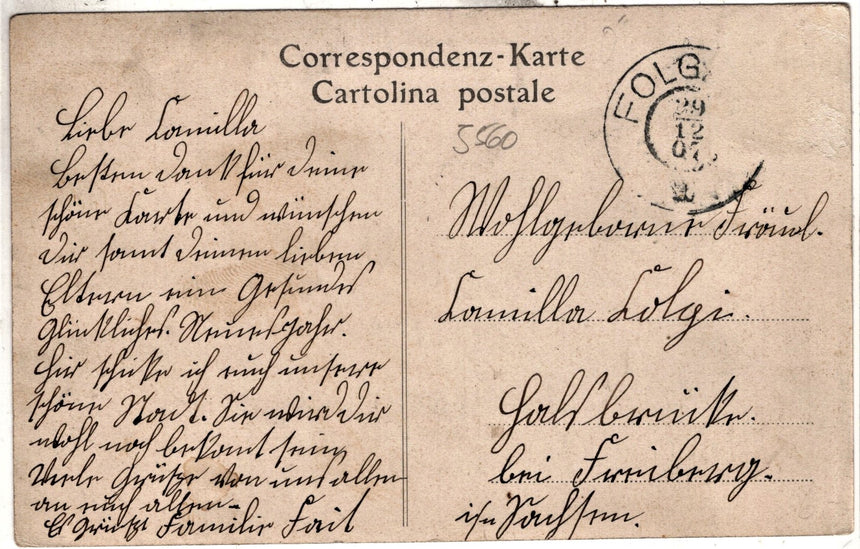 Correspondenz-Karte
Cartolina postale
5560
FOLG
29
12
07
Liebe Camilla
Besten Dank für Deine
schöne Karte und wünschen
Dir samt Deinen lieben
Eltern ein Gesundes
Glückliches Neues Jahr.
Hier schicke ich euch unsere
schöne Stadt. Sie wird Dir
wohl noch bekant sein
Viele Grüße von uns allen
an euch allen
Es Grüßt Familie Fait
Wohlgeborne Fräul.
Camilla Colpi.
Halsbrücke.
bei Freiberg.
i/n Sachsen.